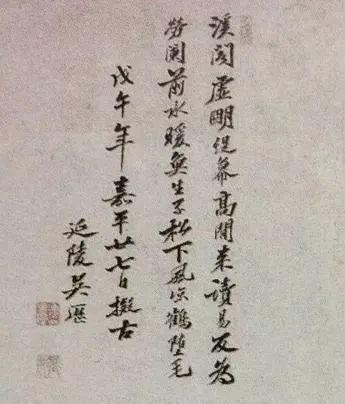 溪閣虛明幕高閒來讀易反為
勞閣前水暖魚生子松下風凉鶴墮毛
戊午年嘉平廿七日擬古
延陵吳歷